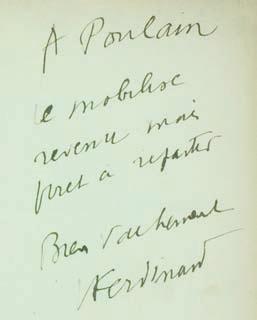 A Poulain
le mobilisé
revenu mais
pret à repartir
Bien
Ferdinand